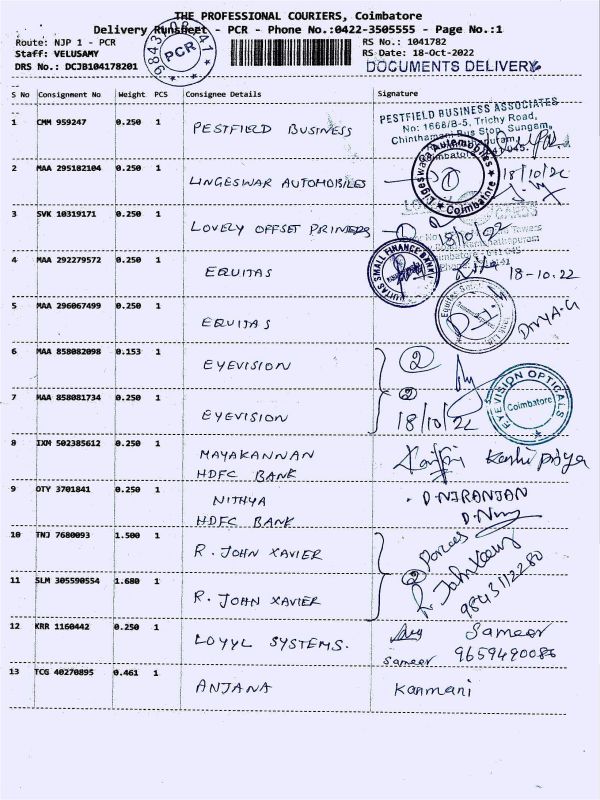 THE PROFESSIONAL COURIERS, Coimbatore
Delivery Runsheet - PCR - Phone No.:0422-3505555 - Page No.:1
Route: NJP 1 - PCR RS No.: 1041782
Staff: VELUSAMY RS Date: 18-Oct-2022
DRS No.: DCJB104178201 DOCUMENTS DELIVERY
PCR
S No Consignment No Weight PCS Consignee Details Signature
1 CMM 959247 0.250 1 PESTFIELD BUSINESS
PESTFIELD BUSINESS ASSOCIATES
No: 1668/B-5, Trichy Road,
Chinthamani Bus Stop, Sungam,
2 MAA 295182104 0.250 1 LINGESWAR AUTOMOBILES 1 18/10/22
Automobiles
Coimbatore
3 SVK 10319171 0.250 1 LOVELY OFFSET PRINTERS 1 18/10/22
4 MAA 292279572 0.250 1 EQUITAS 18-10.22
SMALL FINANCE BANK
5 MAA 296067499 0.250 1 EQUITAS DIVYA-G
6 MAA 858082098 0.153 1 EYEVISION 2
7 MAA 858081734 0.250 1 EYEVISION 2 18/10/22
EYE VISION OPTICALS
Coimbatore
8 IXM 502385612 0.250 1 MAYAKANNAN
HDFC BANK
9 OTY 3701841 0.250 1 NITHYA D.NIRANJAN
HDFC BANK
10 TNJ 7680093 1.500 1 R. JOHN XAVIER 2 Parcels
11 SLM 305590554 1.680 1 R. JOHN XAVIER R. John Xavier
9843112280
12 KRR 1160442 0.250 1 LOYYL SYSTEMS. Sameer
Sameer 9659490086
13 TCG 40270895 0.461 1 ANJANA Kanmani